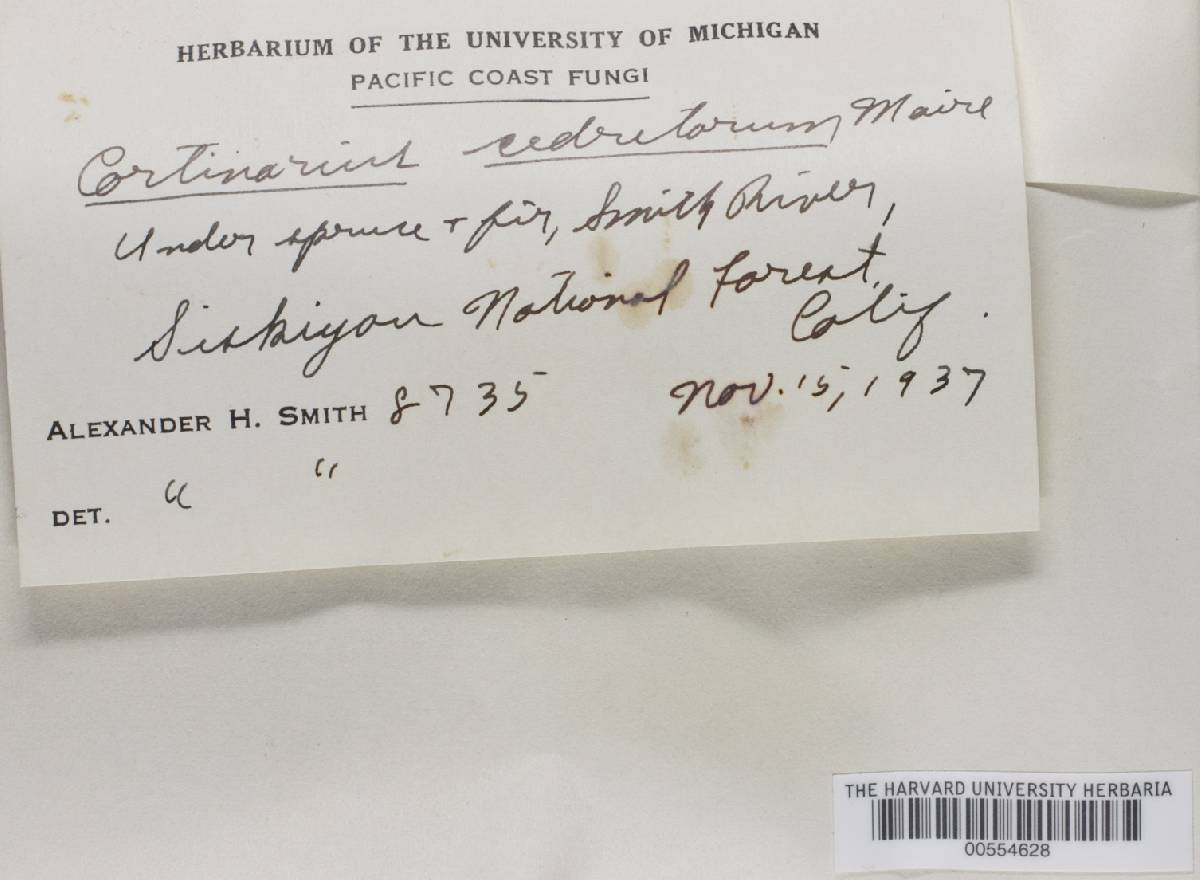 HERBARIUM OF THE UNIVERSITY OF MICHIGAN
PACIFIC COAST FUNGI
Cortinarius cedretorum, Maire
Under spruce + fir, Smith River,
Siskiyou National Forest,
Calif.
ALEXANDER H. SMITH 8735 Nov. 15, 1937
DET. " "
THE HARVARD UNIVERSITY HERBARIA
00554628